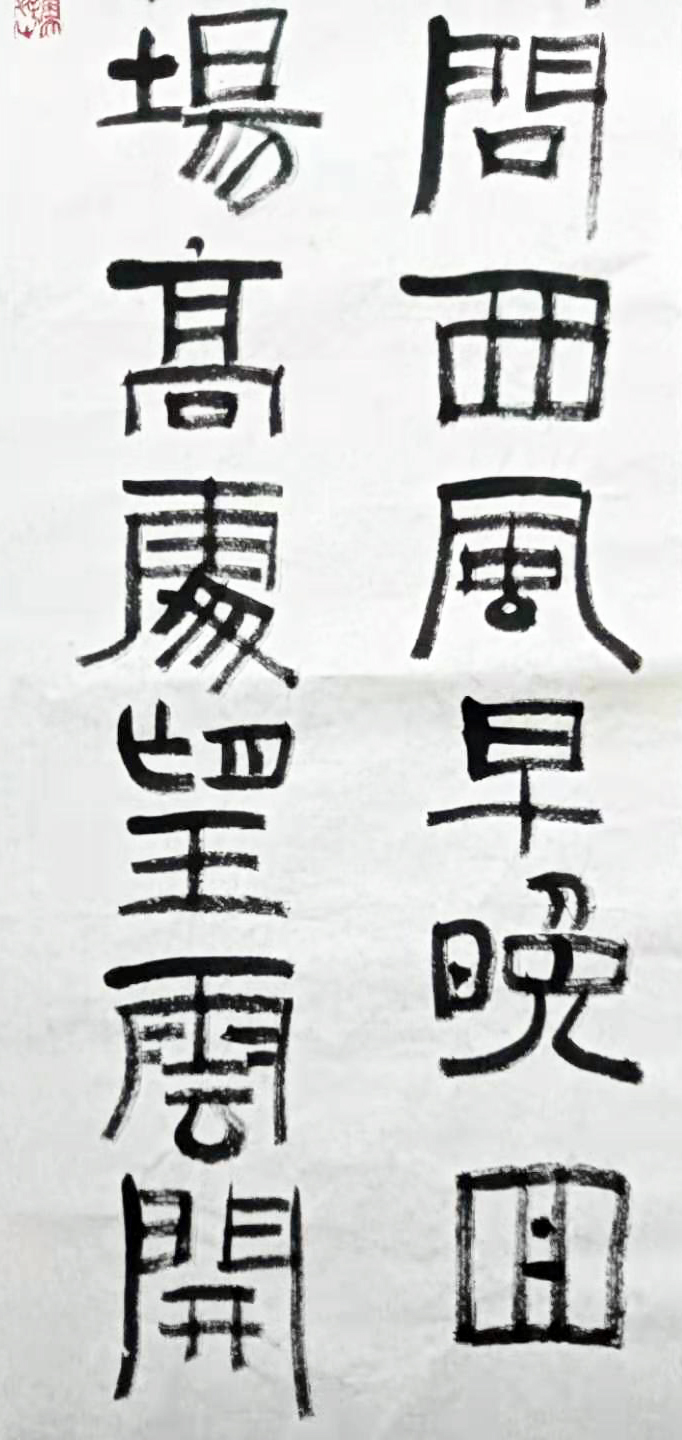 問西風早晚囬
場高處望雲開